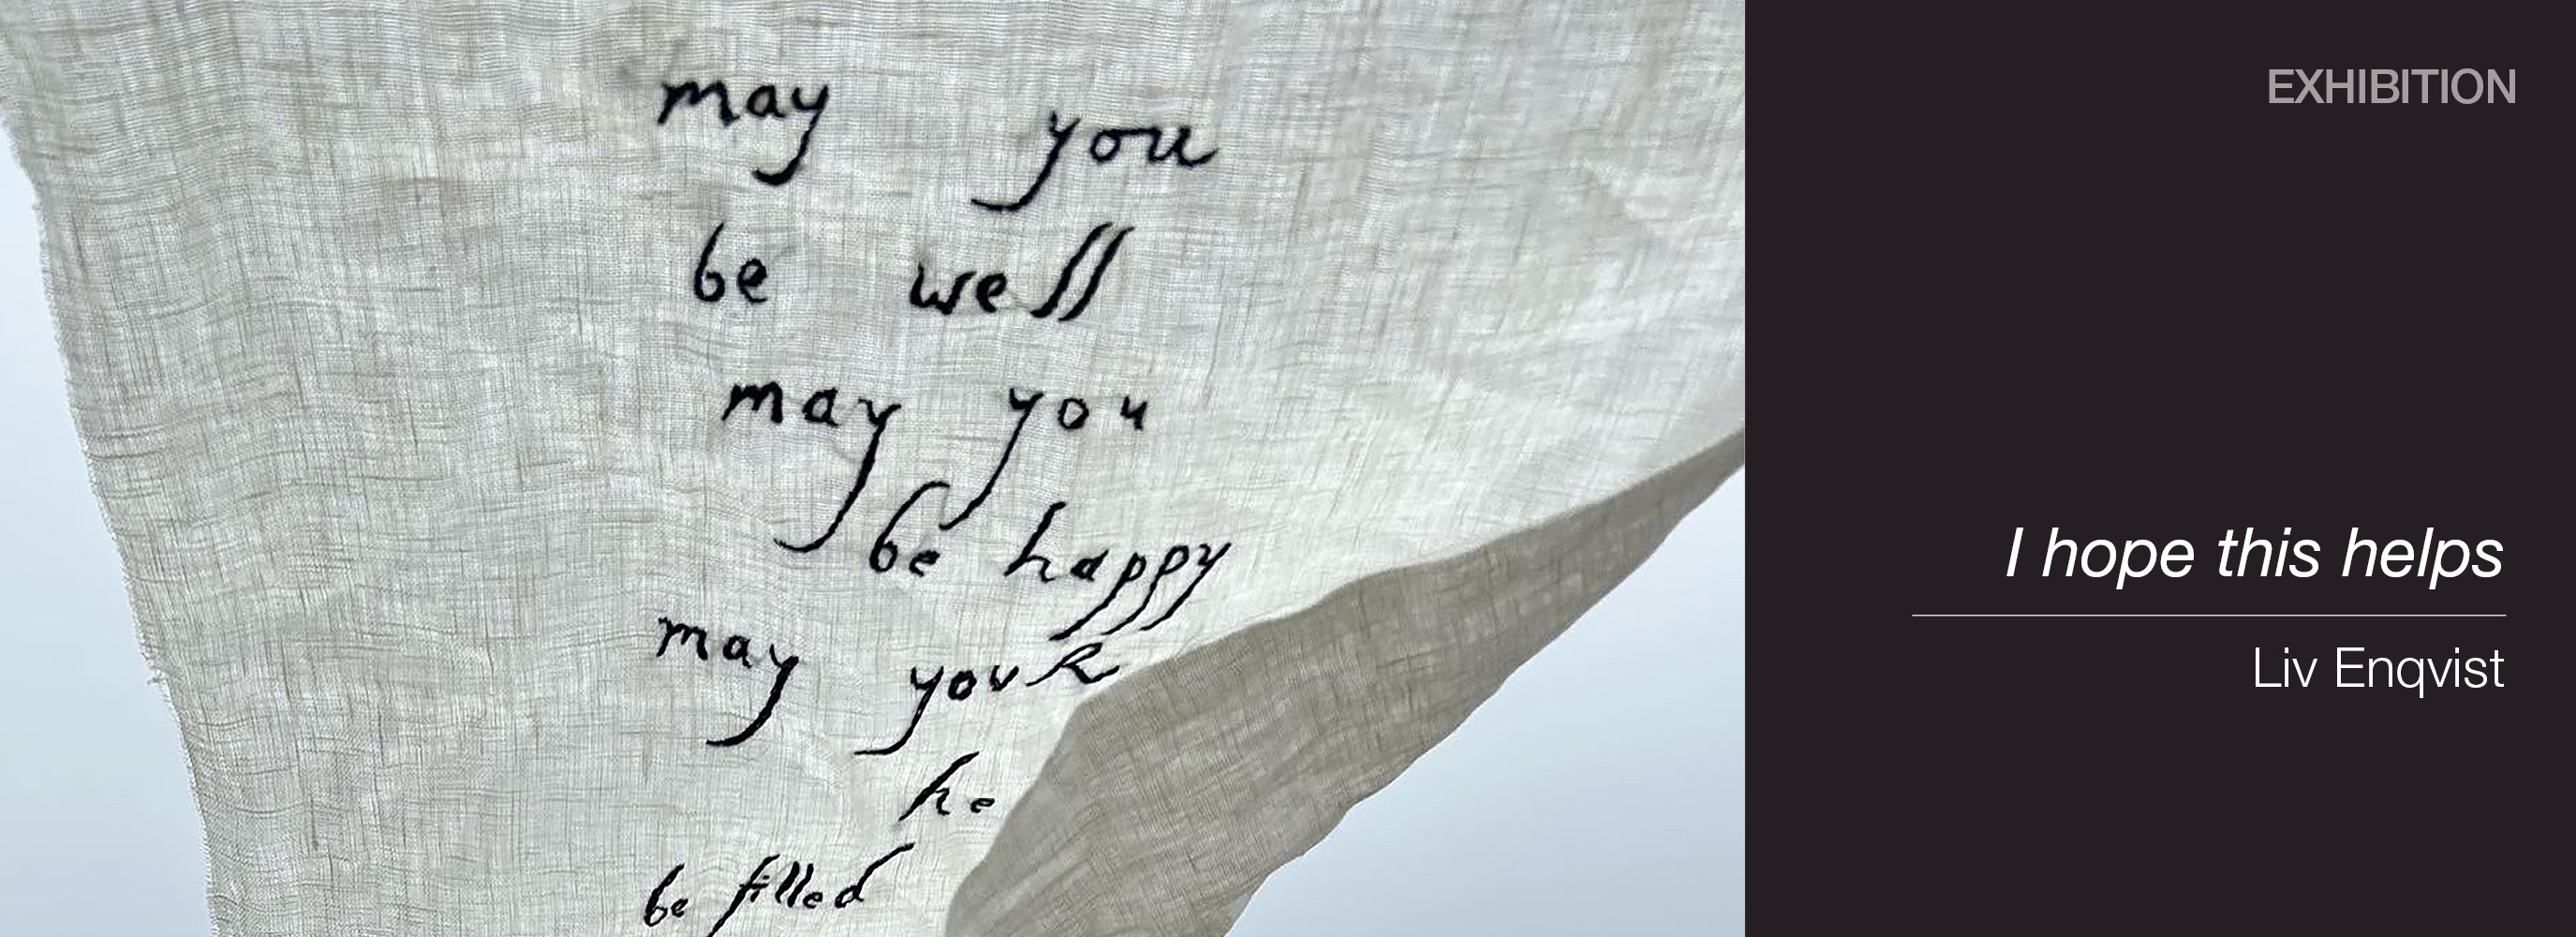 may you
be well
may you
be happy
may your
he
be filled
EXHIBITION
I hope this helps
Liv Enqvist